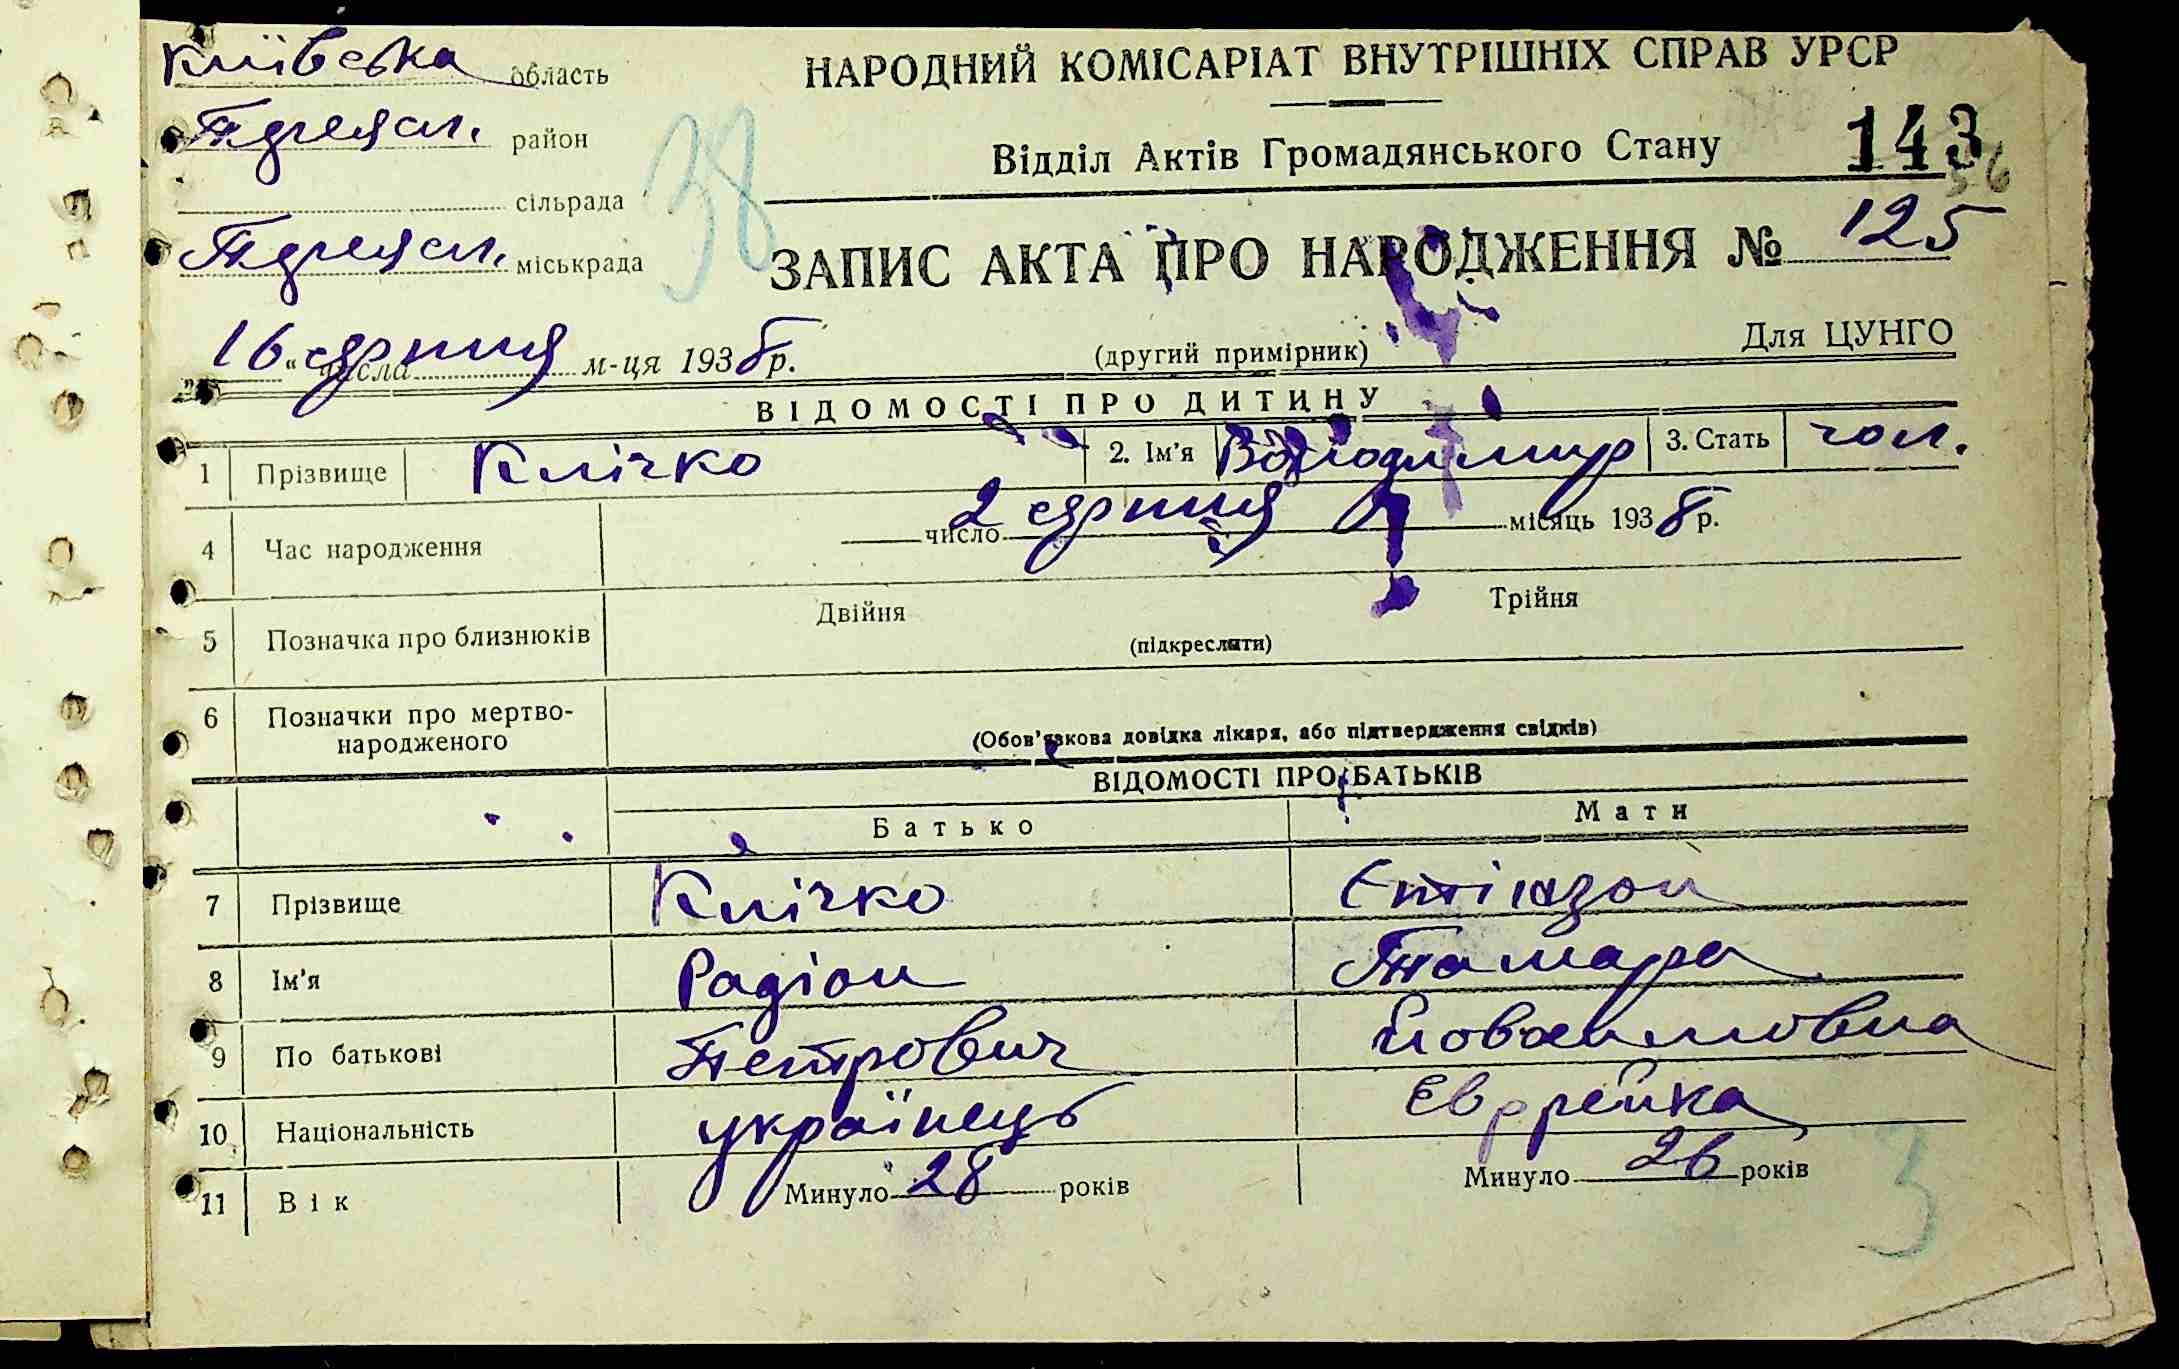 Київська область
НАРОДНИЙ КОМІСАРІАТ ВНУТРІШНІХ СПРАВ УРСР
район
38
Відділ Актів Громадянського Стану
143
56
сільрада
міськрада
ЗАПИС АКТА ПРО НАРОДЖЕННЯ № 125
„16“ числа серпня м-ця 1938 р.
(другий примірник)
Для ЦУНГО
ВІДОМОСТІ ПРО ДИТИНУ
1 Прізвище Клічко 2. Ім'я Володимир 3. Стать чол.
4 Час народження число 2 серпня місяць 1938 р.
5 Позначка про близнюків Двійня Трійня
(підкреслити)
6 Позначки про мертво-
народженого
(Обов'язкова довідка лікаря, або підтвердження свідків)
ВІДОМОСТІ ПРО БАТЬКІВ
Батько Мати
7 Прізвище Клічко
8 Ім'я Радіон Тамара
9 По батькові Петрович
10 Національність українець Єврейка
11 Вік Минуло 28 років Минуло 26 років
3